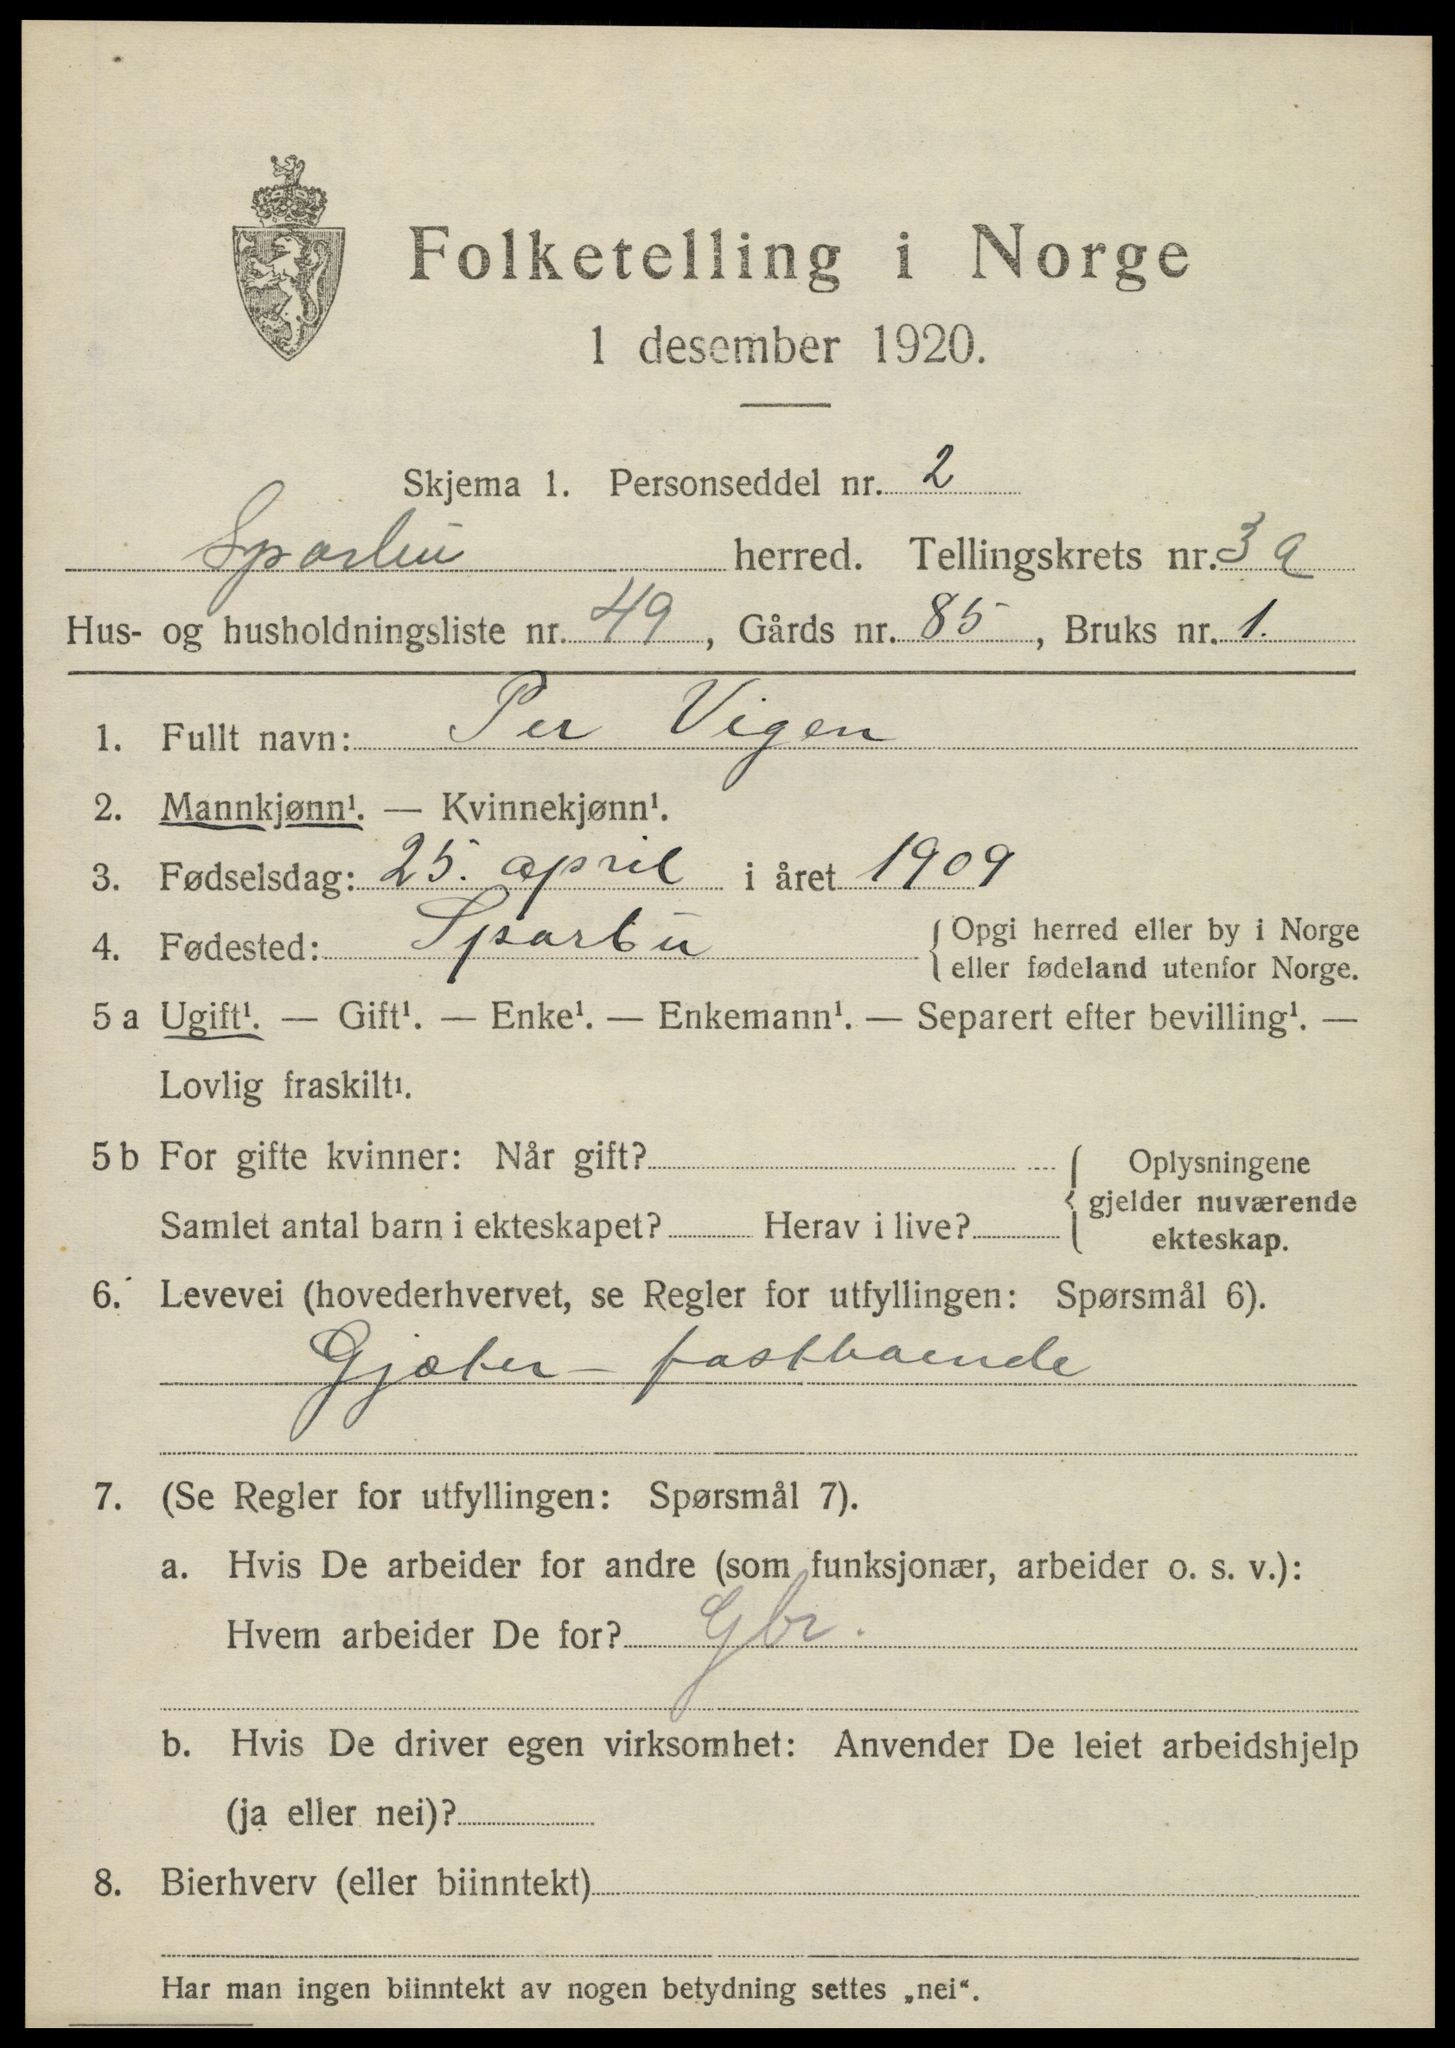 Folketelling i Norge
1 desember 1920.
Skjema 1. Personseddel nr. 2
Sparbu herred. Tellingskrets nr. 3 a
Hus- og husholdningsliste nr. 49, Gårds nr. 85, Bruks nr. 1.
1. Fullt navn: Per Vigen
2. Mannkjønn¹. — Kvinnekjønn¹.
3. Fødselsdag: 25. april i året 1909
4. Fødested: Sparbu { Opgi herred eller by i Norge
eller fødeland utenfor Norge.
5 a Ugift¹. — Gift¹. — Enke¹. — Enkemann¹. — Separert efter bevilling¹. —
Lovlig fraskilt¹.
5 b For gifte kvinner: Når gift? { Oplysningene
gjelder nuværende
Samlet antal barn i ekteskapet? Herav i live?
ekteskap.
6. Levevei (hovederhvervet, se Regler for utfyllingen: Spørsmål 6).
Gjæter – fastboende
7. (Se Regler for utfyllingen: Spørsmål 7).
a. Hvis De arbeider for andre (som funksjonær, arbeider o. s. v.):
Hvem arbeider De for? Gbr.
b. Hvis De driver egen virksomhet: Anvender De leiet arbeidshjelp
(ja eller nei)?
8. Bierhverv (eller biinntekt)
Har man ingen biinntekt av nogen betydning settes „nei“.